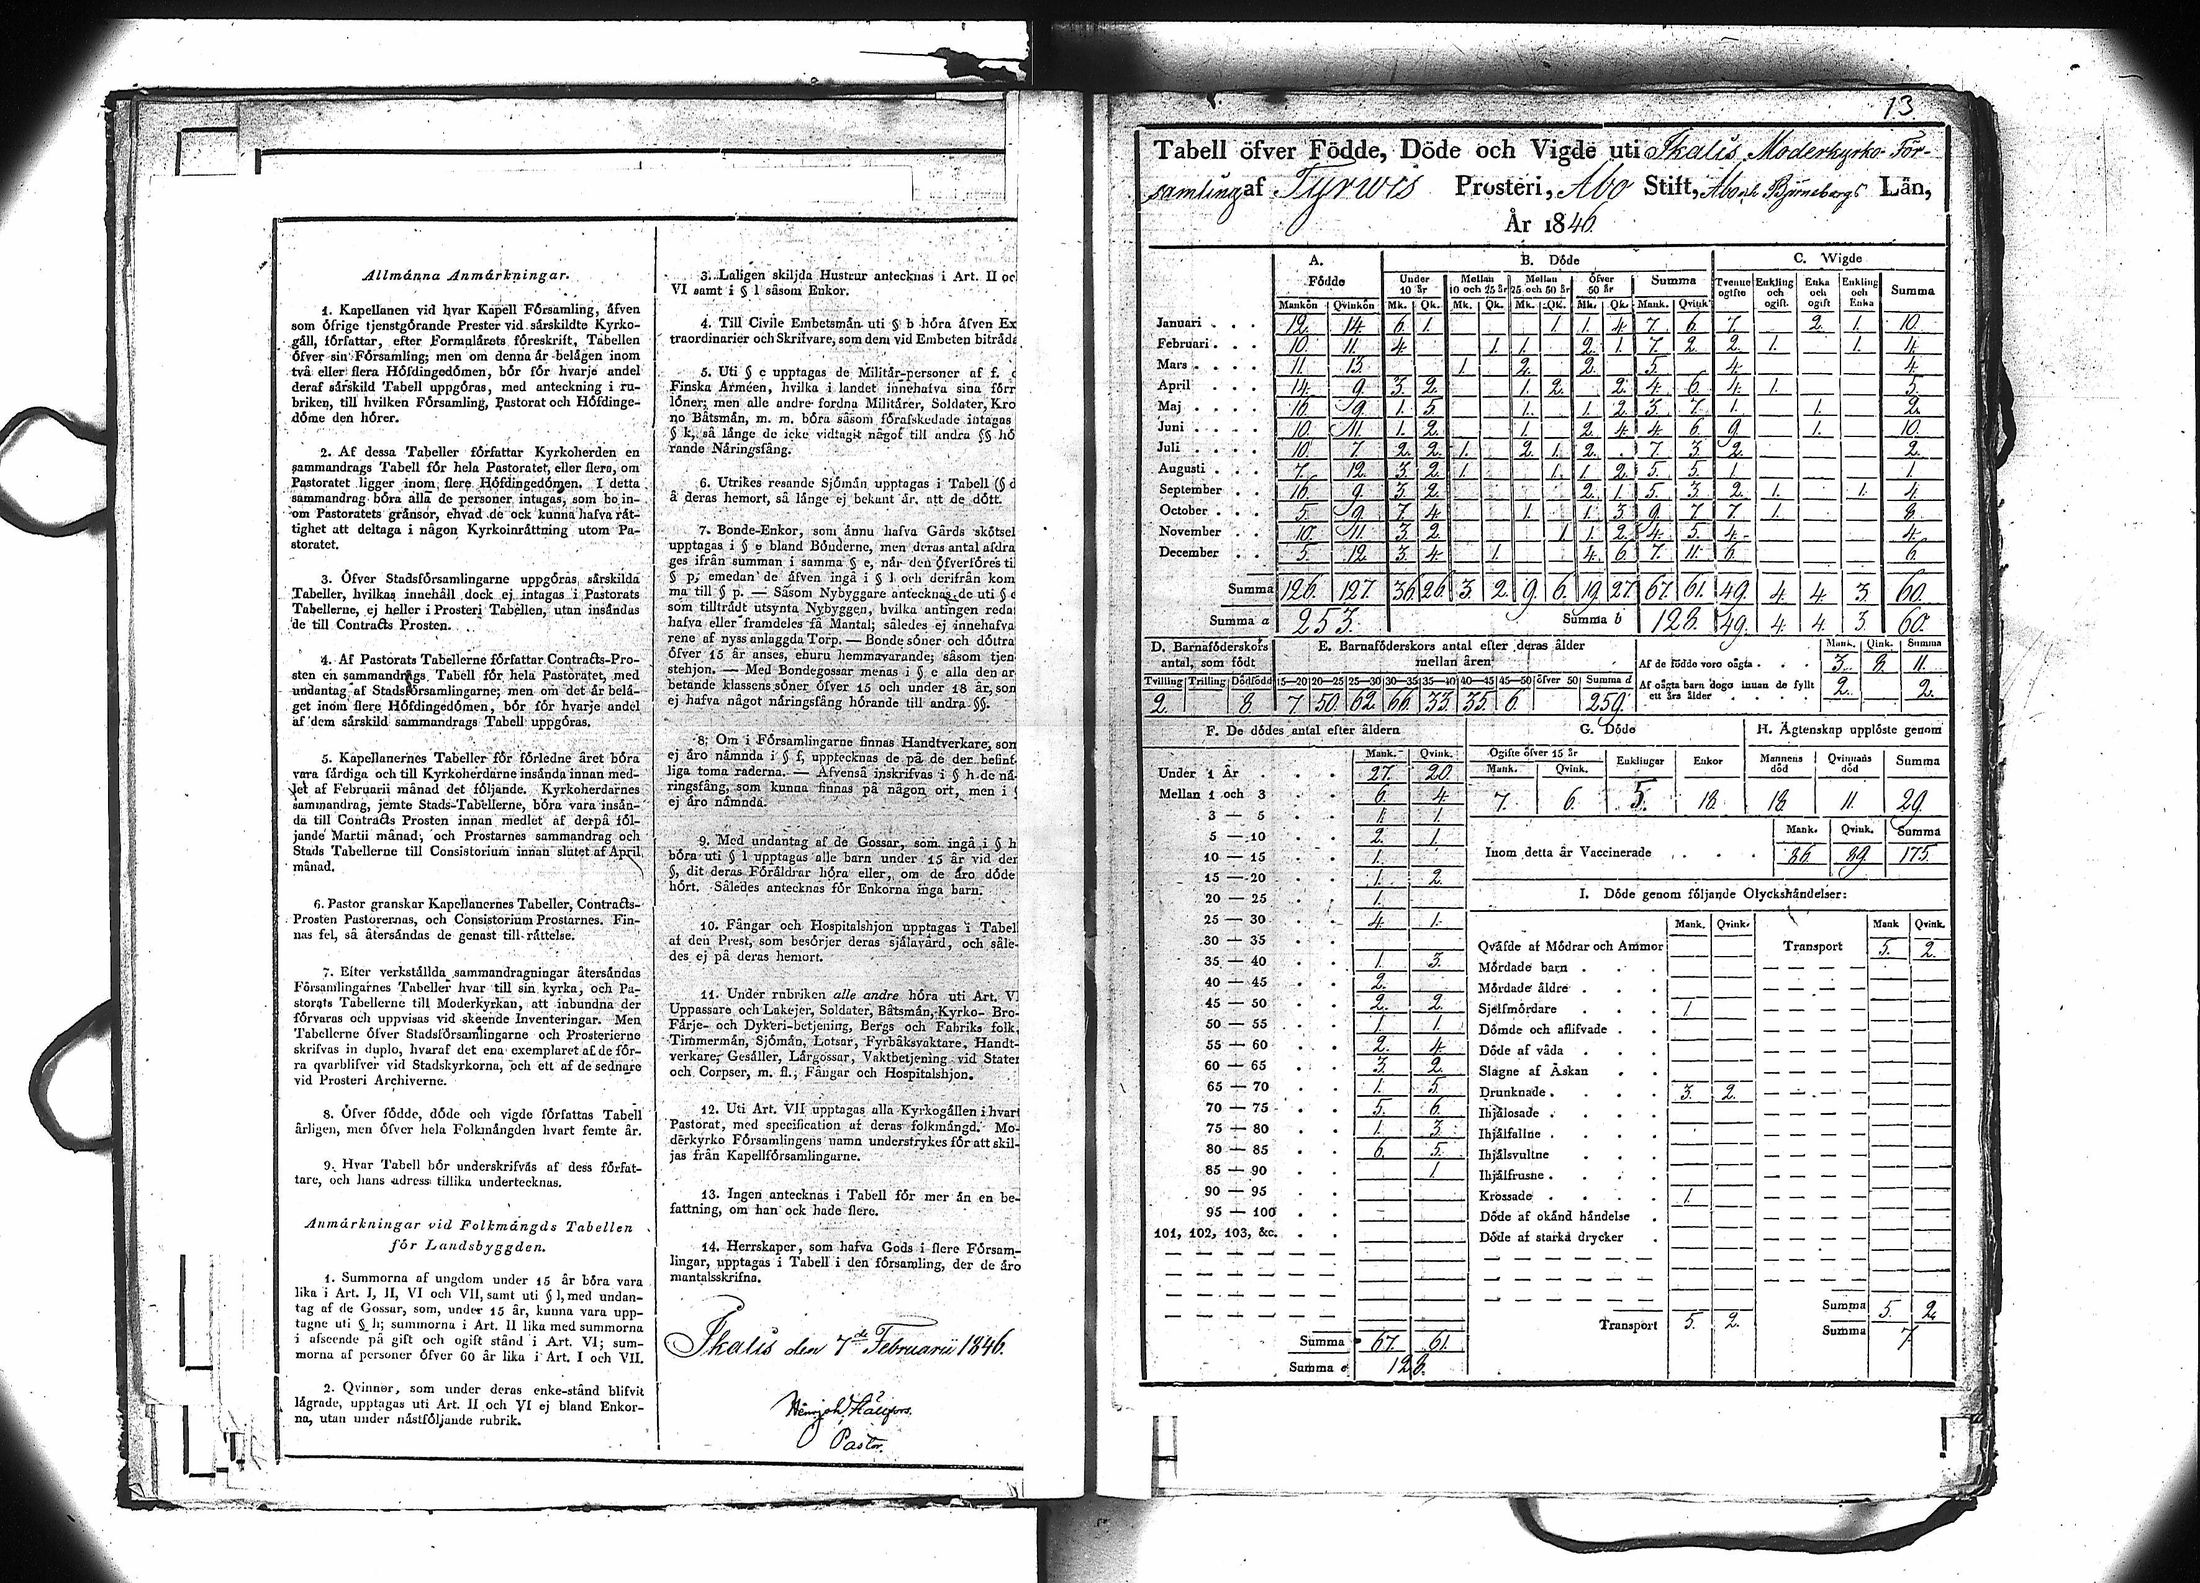 Allmänna Anmärkningar.
1. Kapellanen vid hvar Kapell Församling, äfven
som öfrige tjenstgörande Prester vid särskildte Kyrko-
gäll, författar, efter Formulärets föreskrift, Tabellen
öfver sin Församling; men om denna är belägen inom
två eller flera Höfdingedömen, bör för hvarje andel
deraf särskild Tabell uppgöras, med anteckning i ru-
briken, till hvilken Församling, Pastorat och Höfdinge-
döme den hörer.
2. Af dessa Tabeller författar Kyrkoherden en
sammandrags Tabell för hela Pastoratet, eller flera, om
Pastoratet ligger inom flere Höfdingedömen. I detta
sammandrag böra alla de personer intagas, som bo in-
om Pastoratets gränsor, ehvad de ock kunna hafva rät-
tighet att deltaga i någon Kyrkoinrättning utom Pa-
storatet.
3. Öfver Stadsförsamlingarne uppgöras särskilda
Tabeller, hvilkas innehåll dock ej intagas i Pastorats
Tabellerne, ej heller i Prosteri Tabellen, utan insändas
de till Contracts Prosten.
4. Af Pastorats Tabellerne författar Contracts-Pro-
sten en sammandrags Tabell för hela Pastoratet, med
undantag af Stadsförsamlingarne; men om det är belä-
get inom flere Höfdingedömen, bör för hvarje andel
af dem särskild sammandrags Tabell uppgöras.
5. Kapellanernes Tabeller för förledne året böra
vara färdiga och till Kyrkoherdarne insända innan med-
let af Februarii månad det följande. Kyrkoherdarnes
sammandrag, jemte Stads-Tabellerne, böra vara insän-
da till Contracts Prosten innan medlet af derpå föl-
jande Martii månad; och Prostarnes sammandrag och
Stads Tabellerne till Consistorium innan slutet af April
månad.
6. Pastor granskar Kapellanernes Tabeller, Contracts-
Prosten Pastorernas, och Consistorium Prostarnes. Fin-
nas fel, så återsändas de genast till rättelse.
7. Efter verkställda sammandragningar återsändas
Församlingarnes Tabeller hvar till sin kyrka, och Pa-
storats Tabellerne till Moderkyrkan, att inbundna der
förvaras och uppvisas vid skeende Inventeringar. Men
Tabellerne öfver Stadsförsamlingarne och Prosterierne
skrifvas in duplo, hvaraf det ena exemplaret af de för-
ra qvarblifver vid Stadskyrkorna, och ett af de sednare
vid Prosteri Archiverne.
8. Öfver födde, döde och vigde författas Tabell
årligen, men öfver hela Folkmängden hvart femte år.
9. Hvar Tabell bör underskrifvas af dess författ-
tare, och hans adress tillika undertecknas.
Anmärkningar vid Folkmängds Tabellen
för Landsbyggden.
1. Summorna af ungdom under 15 år böra vara
lika i Art. I, II, VI och VII, samt uti § l, med undan-
tag af de Gossar, som, under 15 år, kunna vara upp-
tagne uti § h; summorna i Art. II lika med summorna
i afseende på gift och ogift stånd i Art. VI; sum-
morna af personer öfver 60 år lika i Art. I och VII.
2. Qvinnor, som under deras enke-stånd blifvit
lägrade, upptagas uti Art. II och VI ej bland Enkor-
na, utan under nästföljande rubrik.
3. Laligen skiljda Hustrur antecknas i Art. II oc
VI samt i § l såsom Enkor.
4. Till Civile Embetsmän uti § b höra äfven Ex
traordinarier och Skrifvare, som dem vid Embeten biträda
5. Uti § c upptagas de Militär-personer af f. d
Finska Arméen, hvilka i landet innehafva sina förr
löner; men alle andre fordna Militärer, Soldater, Kro
no Båtsmän, m. m. böra såsom förafskedade intagas
§ k, så länge de icke vidtagit något till andra §§ hö
rande Näringsfång.
6. Utrikes resande Sjömän upptagas i Tabell (§ d
å deras hemort, så länge ej bekant är, att de dött.
7. Bonde-Enkor, som ännu hafva Gårds skötsel
upptagas i § e bland Bönderne, men deras antal afdra
ges ifrån summan i samma § e, när den öfverföres til
§ p, emedan de äfven ingå i § l och derifrån kom
ma till § p. — Såsom Nybyggare antecknas de uti § e
som tillträdt utsynta Nybyggen, hvilka antingen reda
hafva eller framdeles få Mantal; således ej innehafva
rene af nyss anlaggda Torp. — Bonde söner och döttra
öfver 15 år anses, ehuru hemmavarande, såsom tjen
stehjon. — Med Bondegossar menas i § e alla den ar
betande klassens söner öfver 15 och under 18 år, son
ej hafva något näringsfång hörande till andra §§.
8. Om i Församlingarne finnas Handtverkare, son
ej äro nämnda i § f, upptecknas de på de der befint
liga toma raderna. — Äfvenså inskrifvas i § h de nä
ringsfång, som kunna finnas på någon ort, men i §
ej äro nämnda.
9. Med undantag af de Gossar, som ingå i § h
böra uti § l upptagas alle barn under 15 år vid der
§, dit deras Föräldrar höra eller, om de äro döde
hört. Således antecknas för Enkorna inga barn.
10. Fångar och Hospitalshjon upptagas i Tabel
af den Prest, som besörjer deras själavård, och såle-
des ej på deras hemort.
11. Under rubriken alle andre höra uti Art. VI
Uppassare och Lakejer, Soldater, Båtsmän, Kyrko- Bro-
Färje- och Dykeri-betjening, Bergs och Fabriks folk,
Timmermän, Sjömän, Lotsar, Fyrbåksvaktare, Handt-
verkare, Gesäller, Lärgossar, Vaktbetjening vid Stater
och Corpser, m. fl., Fångar och Hospitalshjon.
12. Uti Art. VII upptagas alla Kyrkogällen i hvart
Pastorat, med specification af deras folkmängd. Mo-
derkyrko Församlingens namn understrykes för att skil-
jas från Kapellförsamlingarne.
13. Ingen antecknas i Tabell för mer än en be-
fattning, om han ock hade flere.
14. Herrskaper, som hafva Gods i flere Försam-
lingar, upptagas i Tabell i den församling, der de äro
mantalsskrifna.
Ikalis den 7de Februarii 1846.
Pastor.
13
Tabell öfver Födde, Döde och Vigde uti Ikalis Moderkyrko-För-
samling af Tyrwis Prosteri, Åbo Stift, Åbo och Björneborgs Län,
År 1846.
A. B. Döde C. Wigde
Födde Under 10 år Mellan 10 och 25 år Mellan 25 och 50 år Öfver 50 år Summa Tvenne ogifte Enkling och ogift. Enka och ogift Enkling och Enka Summa
Mankön Qvinkön Mk. Qk. Mk. Qk. Mk. Qk. Mk. Qk. Mank. Qvink
Januari 12. 14. 6. 1. 1. 1. 4. 7. 6. 7. 2. 1. 10.
Februari 10. 11. 4. 1. 1. 2. 1. 7. 2. 2. 1. 1. 4.
Mars 11. 13. 1. 2. 2. 5. 4. 4.
April 14. 9. 3. 2. 1. 2. 2. 4. 6. 4. 1. 5.
Maj 16. 9. 1. 5. 1. 1. 2. 3. 7. 1. 1. 2.
Juni 10. 11. 1. 2. 1. 2. 4. 4. 6. 9. 1. 10.
Juli 10. 7. 2. 2. 1. 2. 1. 2. 7. 3. 2. 2.
Augusti 7. 12. 3. 2. 1. 1. 2. 5. 5. 1. 1.
September 16. 9. 3. 2. 2. 1. 5. 3. 2. 1. 1. 4.
October 5. 9. 7. 4. 1. 1. 3. 9. 7. 7. 1. 8.
November 10. 11. 3. 2. 1 1. 2. 4. 5. 4. 4.
December 5. 12. 3. 4. 1. 4. 6. 7. 11. 6. 6.
Summa 126. 127. 36 26. 3. 2. 9. 6. 19. 27. 67. 61. 49. 4. 4. 3. 60.
Summa a 253. Summa b 128. 49. 4. 4. 3. 60.
D. Barnaföderskors antal, som födt
Tvilling Trilling Dödfödd
2. 8
E. Barnaföderskors antal efter deras ålder mellan åren
15—20 20—25 25—30 30—35 35—40 40—45 45—50 öfver 50 Summa d
7 50. 62 66. 33 35 6. 259.
Mank. Qink. Summa
Af de födde voro oägta 3. 8. 11.
Af oägta barn dogo innan de fyllt ett års ålder 2. 2.
F. De dödes antal efter åldern
Mank. Qvink.
Under 1 År 27. 20.
Mellan 1 och 3 6. 4.
3 — 5 1. 1.
5 — 10 2. 1.
10 — 15 1.
15 — 20 1. 2.
20 — 25 1.
25 — 30 4. 1.
30 — 35
35 — 40 1. 3.
40 — 45 2.
45 — 50 2. 2
50 — 55 1. 1.
55 — 60 2. 4.
60 — 65 3. 2.
65 — 70 1. 5.
70 — 75 5. 6.
75 — 80 1. 3.
80 — 85 6. 5.
85 — 90 1.
90 — 95
95 — 100
101, 102, 103, &c.
Summa 67. 61.
Summa e 128.
G. Döde
Ogifte öfver 15 år Enklingar Enkor
Mank. Qvink.
7. 6. 5. 18.
H. Ägtenskap upplöste genom
Mannens död Qvinnans död Summa
18 11. 29.
Mank. Qvink. Summa
Inom detta år Vaccinerade 86. 89. 175.
I. Döde genom följande Olyckshändelser:
Mank. Qvink. Mank Qvink.
Qväfde af Mödrar och Ammor Transport 5. 2.
Mördade barn
Mördade äldre
Sjelfmördare 1
Dömde och aflifvade
Döde af våda
Slagne af Åskan
Drunknade 3. 2.
Ihjälosade
Ihjälfallne
Ihjälsvultne
Ihjälfrusne
Krossade 1.
Döde af okänd händelse
Döde af starka drycker
Transport 5. 2.
Summa 5 2.
Summa 7.